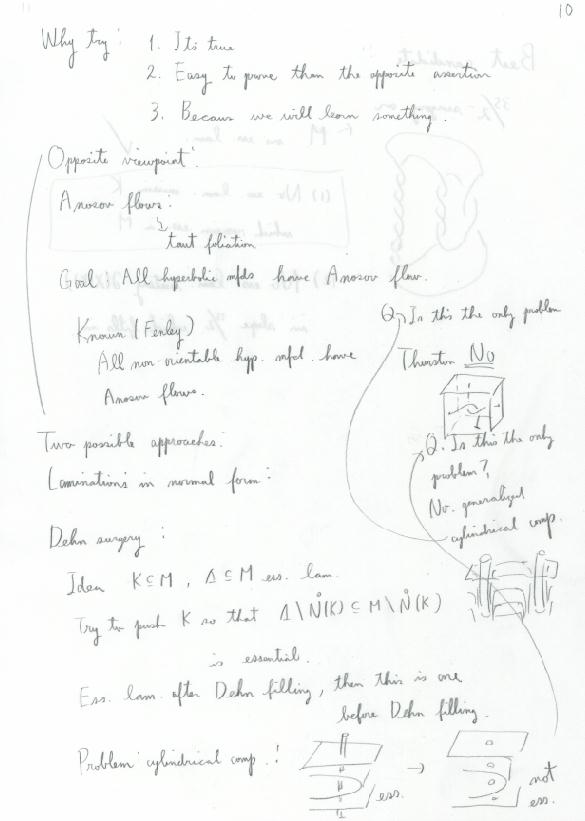 10
Why try: 1. Its true
2. Easy to prove than the opposite assertion
3. Becaus we will learn something.
Opposite viewpoint:
Anosov flows:
taut foliation
Goal: All hyperbolic mfds have Anosov flow.
Known (Fenley)
All non-orientable hyp. mfd. have
Anosov flows.
Q. Is this the only problem
Thurston No
Q. Is this the only
problem?
No. generalized
cylindrical comp.
Two possible approaches:
Laminations in normal form:
Dehn surgery:
Idea K ⊆ M, Λ ⊆ M ess. lam.
Try to push K so that Λ \ N̊(K) ⊆ M \ N̊(K)
is essential.
Ess. lam. after Dehn filling, then this is one
before Dehn filling.
Problem: cylindrical comp.:
ess.
→
not
ess.